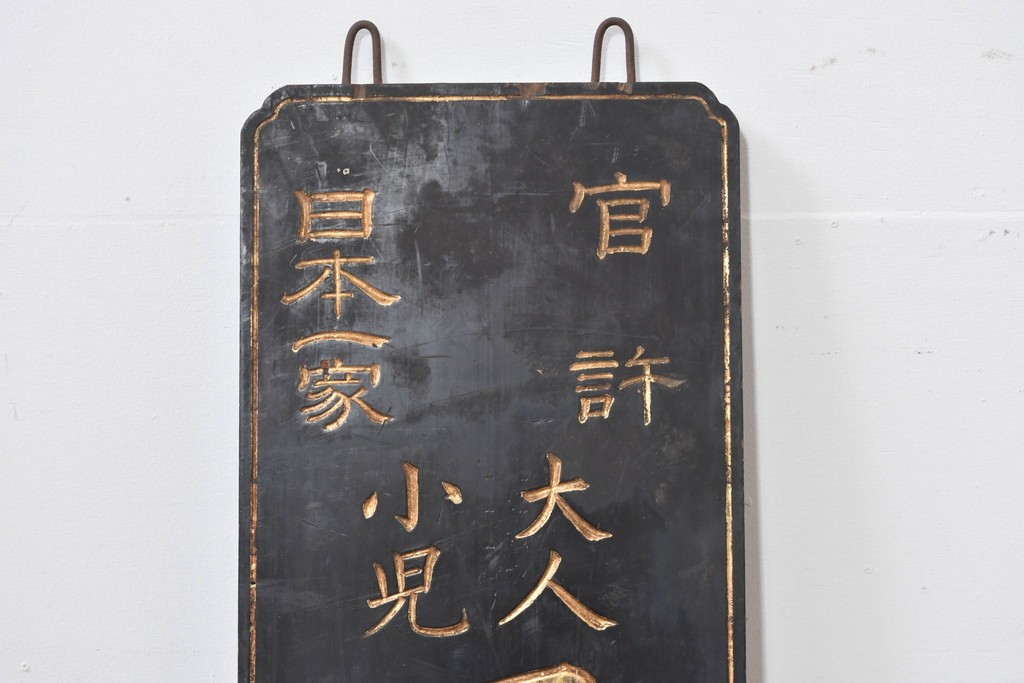 官許
大人
小児
日本一家